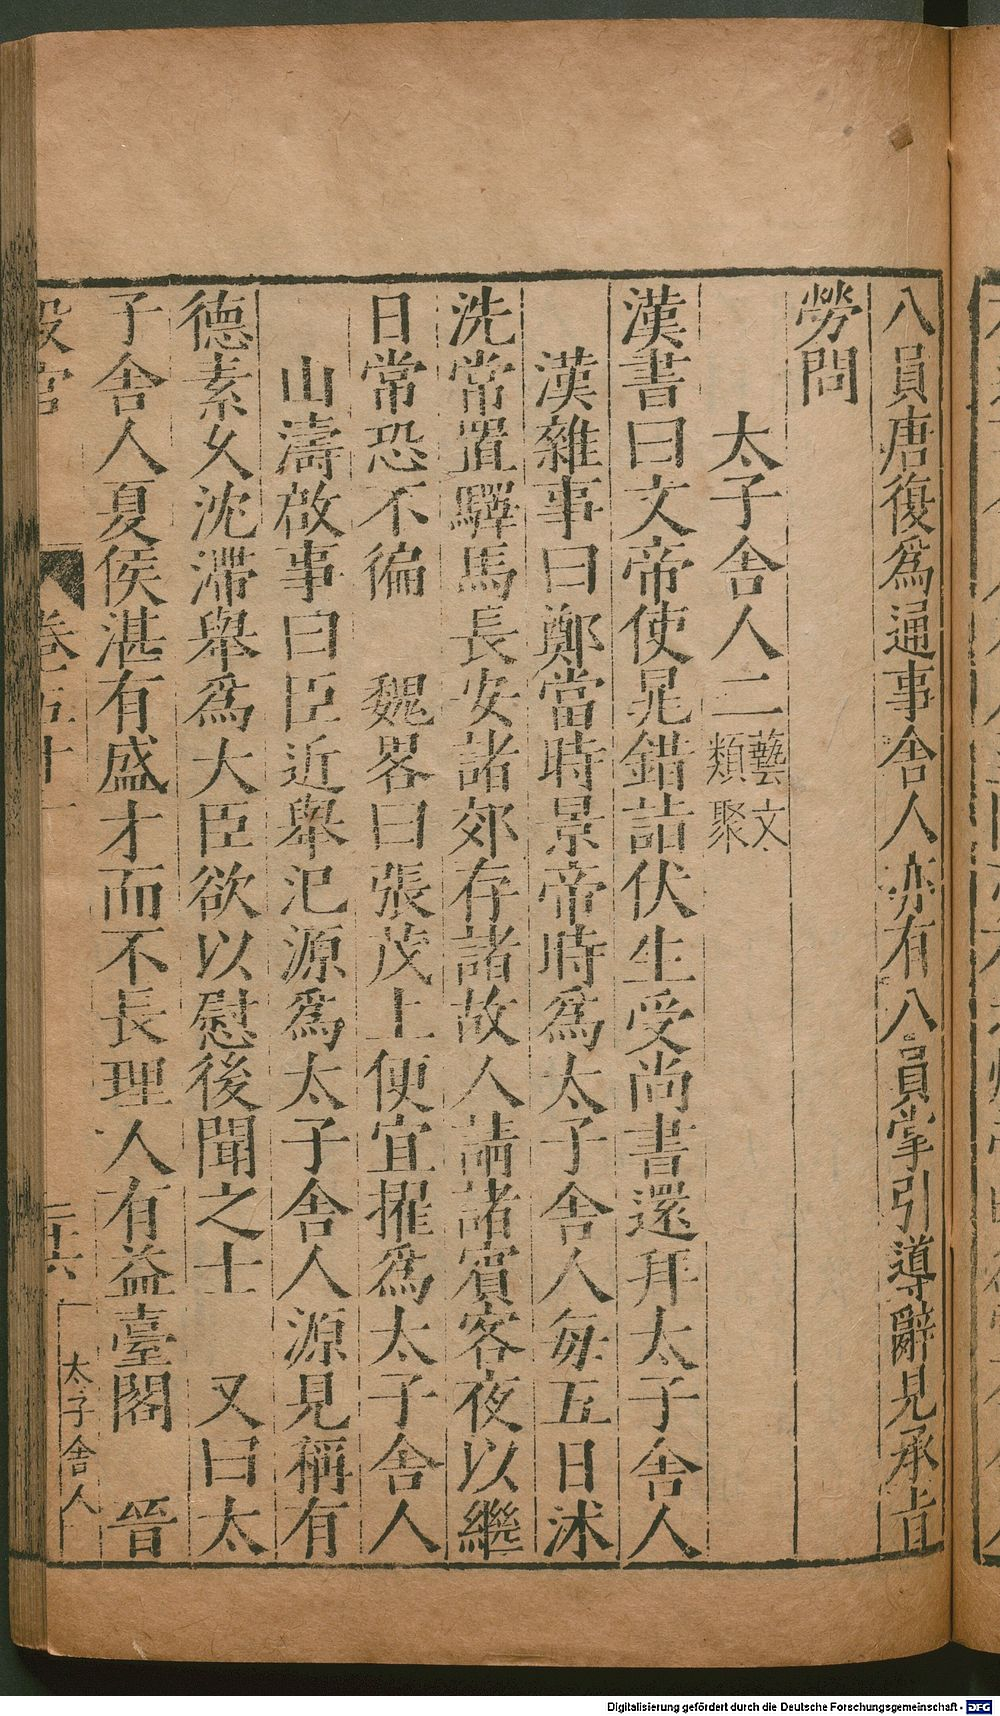 八員唐復爲通事舍人亦有八員掌引導辭見承旨
勞問
太子舍人二 藝文類聚
漢書曰文帝使晁錯詣伏生受尚書還拜太子舍人
漢雜事曰鄭當時景帝時爲太子舍人每五日沐
洗常置驛馬長安諸郊存諸故人請諸賓客夜以繼
日常恐不徧　魏畧曰張茂上便宜擢爲太子舍人
山濤啟事曰臣近舉氾源爲太子舍人源見稱有
德素久沈滯舉爲大臣欲以慰後聞之士　又曰太
子舍人夏侯湛有盛才而不長理人有益臺閣　晉
設官
卷五十一
二十六
太子舍人
Digitalisierung gefördert durch die Deutsche Forschungsgemeinschaft - DFG